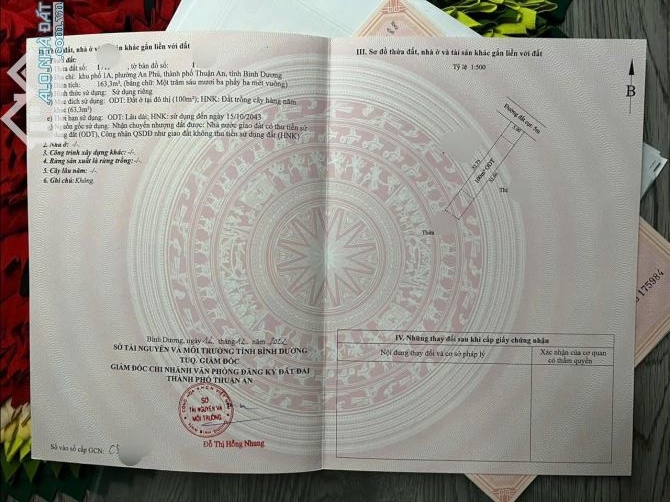 ALO NHÀ ĐẤT
Alonhadat.com.vn
II. Thửa đất, nhà ở và tài sản khác gắn liền với đất
Thửa đất số: 1, tờ bản đồ số: 1
chỉ: khu phố 1A, phường An Phú, thành phố Thuận An, tỉnh Bình Dương
tích: 163,3m², (bằng chữ: Một trăm sáu mươi ba phẩy ba mét vuông)
Hình thức sử dụng: Sử dụng riêng
đích sử dụng: ODT: Đất ở tại đô thị (100m²); HNK: Đất trồng cây hàng năm
khác (63,3m²)
e) Thời hạn sử dụng: ODT: Lâu dài; HNK: sử dụng đến ngày 15/10/2043
g) Nguồn gốc sử dụng: Nhận chuyển nhượng đất được: Nhà nước giao đất có thu tiền sử
dụng đất (ODT), Công nhận QSDĐ như giao đất không thu tiền sử dụng đất (HNK)
2. Nhà ở: -/-
3. Công trình xây dựng khác: -/-
4. Rừng sản xuất là rừng trồng: -/-
5. Cây lâu năm: -/-
6. Ghi chú: Không.
Bình Dương, ngày 12 tháng 12 năm 2022
SỞ TÀI NGUYÊN VÀ MÔI TRƯỜNG TỈNH BÌNH DƯƠNG
TUQ. GIÁM ĐỐC
GIÁM ĐỐC CHI NHÁNH VĂN PHÒNG ĐĂNG KÝ ĐẤT ĐAI
THÀNH PHỐ THUẬN AN
SỞ
TÀI NGUYÊN VÀ
MÔI TRƯỜNG
TỈNH BÌNH DƯƠNG
Đỗ Thị Hồng Nhung
Số vào sổ cấp GCN: CS
III. Sơ đồ thửa đất, nhà ở và tài sản khác gắn liền với đất
Tỷ lệ 1:500
B
Đường đất rộng 5m
100m² ODT
Thử
Thửa
IV. Những thay đổi sau khi cấp giấy chứng nhận
Nội dung thay đổi và cơ sở pháp lý
Xác nhận của cơ quan
có thẩm quyền
175984